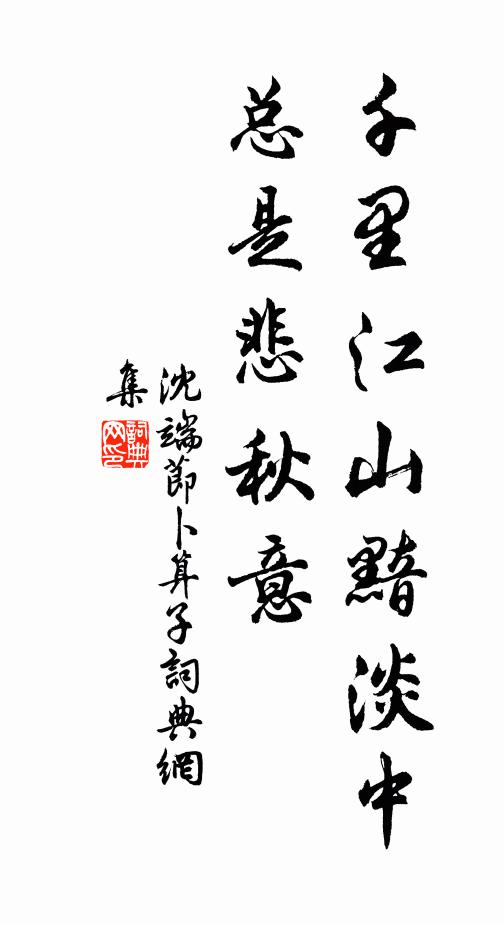 千里江山黯淡中
总是悲秋意
沈端節卜算子詞典網
集
詞典網印